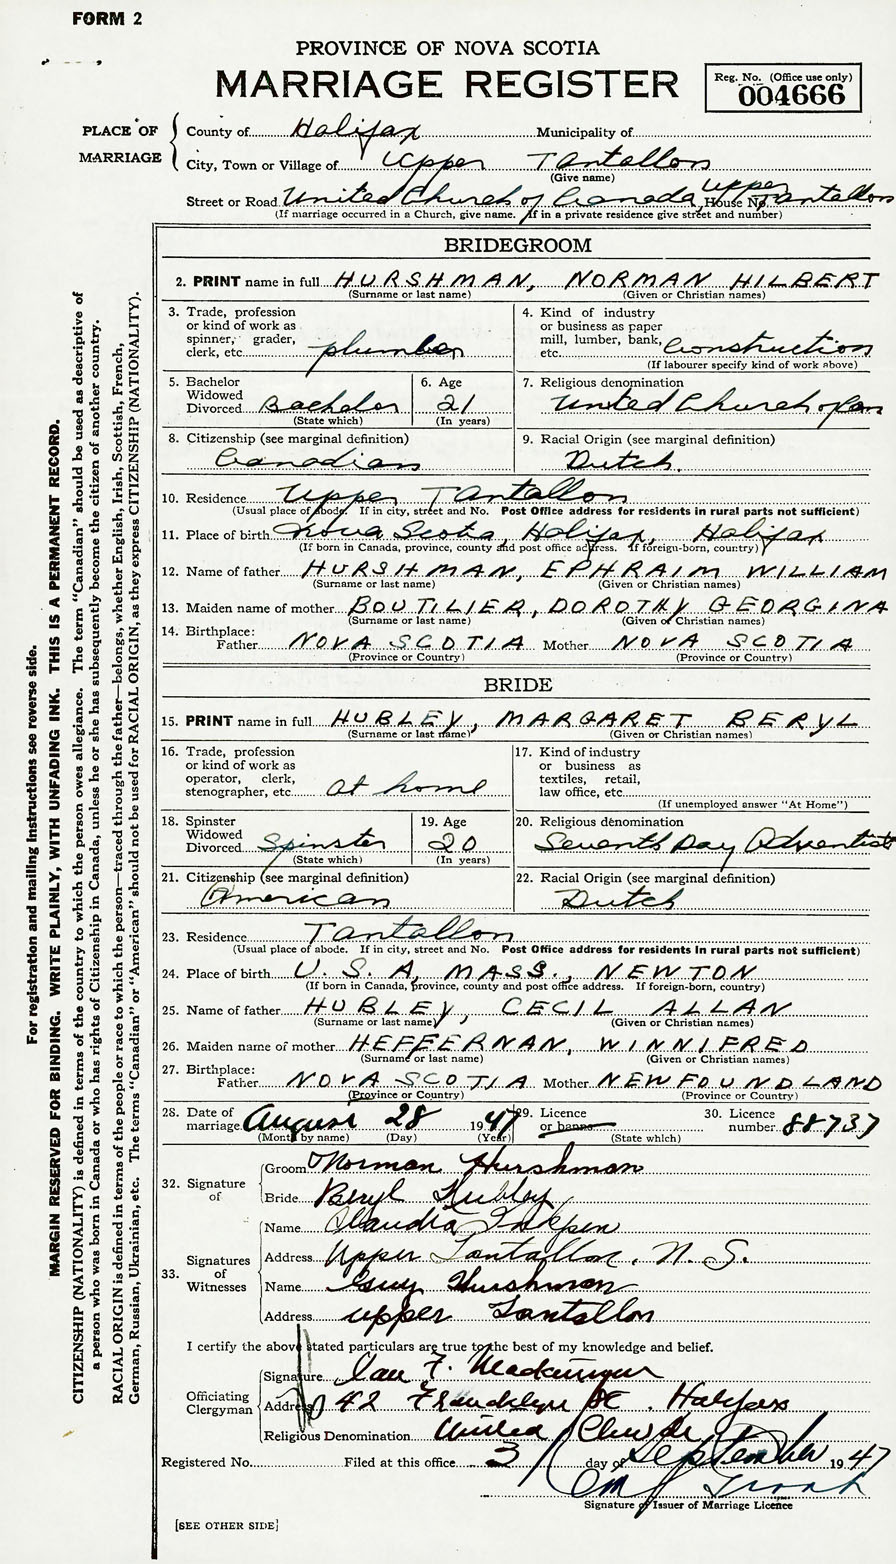 FORM 2
PROVINCE OF NOVA SCOTIA
MARRIAGE REGISTER
Reg. No. (Office use only)
004666
PLACE OF MARRIAGE
County of Halifax Municipality of
City, Town or Village of Upper Tantallon
(Give name)
Street or Road United Church of Canada, Upper Tantallon House No.
(If marriage occurred in a Church, give name. If in a private residence give street and number)
BRIDEGROOM
2. PRINT name in full HURSHMAN, NORMAN HILBERT
(Surname or last name) (Given or Christian names)
3. Trade, profession or kind of work as spinner, grader, clerk, etc. plumber
4. Kind of industry or business as paper mill, lumber, bank, etc. Construction
(If labourer specify kind of work above)
5. Bachelor Widowed Divorced Bachelor
(State which)
6. Age 21
(In years)
7. Religious denomination
United Church of Can
8. Citizenship (see marginal definition)
Canadian
9. Racial Origin (see marginal definition)
Dutch.
10. Residence Upper Tantallon
(Usual place of abode. If in city, street and No. Post Office address for residents in rural parts not sufficient)
11. Place of birth Nova Scotia, Halifax, Halifax
(If born in Canada, province, county and post office address. If foreign-born, country)
12. Name of father HURSHMAN, EPHRAIM WILLIAM
(Surname or last name) (Given or Christian names)
13. Maiden name of mother BOUTILIER, DOROTHY GEORGINA
(Surname or last name) (Given or Christian names)
14. Birthplace:
Father NOVA SCOTIA Mother NOVA SCOTIA
(Province or Country) (Province or Country)
BRIDE
15. PRINT name in full HUBLEY, MARGARET BERYL
(Surname or last name) (Given or Christian names)
16. Trade, profession or kind of work as operator, clerk, stenographer, etc. at home
17. Kind of industry or business as textiles, retail, law office, etc.
(If unemployed answer "At Home")
18. Spinster Widowed Divorced Spinster
(State which)
19. Age 20
(In years)
20. Religious denomination
Seventh Day Adventist
21. Citizenship (see marginal definition)
American
22. Racial Origin (see marginal definition)
Dutch
23. Residence Tantallon
(Usual place of abode. If in city, street and No. Post Office address for residents in rural parts not sufficient)
24. Place of birth U. S. A, MASS., NEWTON
(If born in Canada, province, county and post office address. If foreign-born, country)
25. Name of father HUBLEY, CECIL ALLAN
(Surname or last name) (Given or Christian names)
26. Maiden name of mother HEFFERNAN, WINNIFRED
(Surname or last name) (Given or Christian names)
27. Birthplace:
Father NOVA SCOTIA Mother NEWFOUNDLAND
(Province or Country) (Province or Country)
28. Date of marriage August 28 1947
(Month by name) (Day) (Year)
29. Licence or banns
(State which)
30. Licence number 88737
32. Signature of
Groom Norman Hurshman
Bride Beryl Hubley
33. Signatures of Witnesses
Name Claudia Inkpen
Address Upper Tantallon, N. S.
Name Guy Hurshman
Address Upper Tantallon
I certify the above stated particulars are true to the best of my knowledge and belief.
Officiating Clergyman
Signature Ian F.
Address 42 St. Halifax
Religious Denomination United Church
Registered No. Filed at this office 3 day of September 1947
Signature of Issuer of Marriage Licence
[SEE OTHER SIDE]
For registration and mailing instructions see reverse side.
MARGIN RESERVED FOR BINDING. WRITE PLAINLY, WITH UNFADING INK. THIS IS A PERMANENT RECORD.
CITIZENSHIP (NATIONALITY) is defined in terms of the country to which the person owes allegiance. The term "Canadian" should be used as descriptive of
a person who was born in Canada or who has rights of Citizenship in Canada, unless he or she has subsequently become the citizen of another country.
RACIAL ORIGIN is defined in terms of the people or race to which the person—traced through the father—belongs, whether English, Irish, Scottish, French,
German, Russian, Ukrainian, etc. The terms "Canadian" or "American" should not be used for RACIAL ORIGIN, as they express CITIZENSHIP (NATIONALITY).